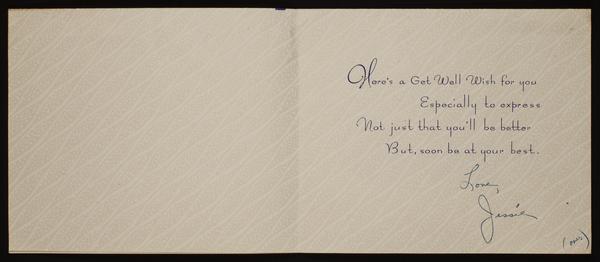 Here's a Get Well Wish for you
Especially to express
Not just that you'll be better
But, soon be at your best.
Love,
Jessie
(over)